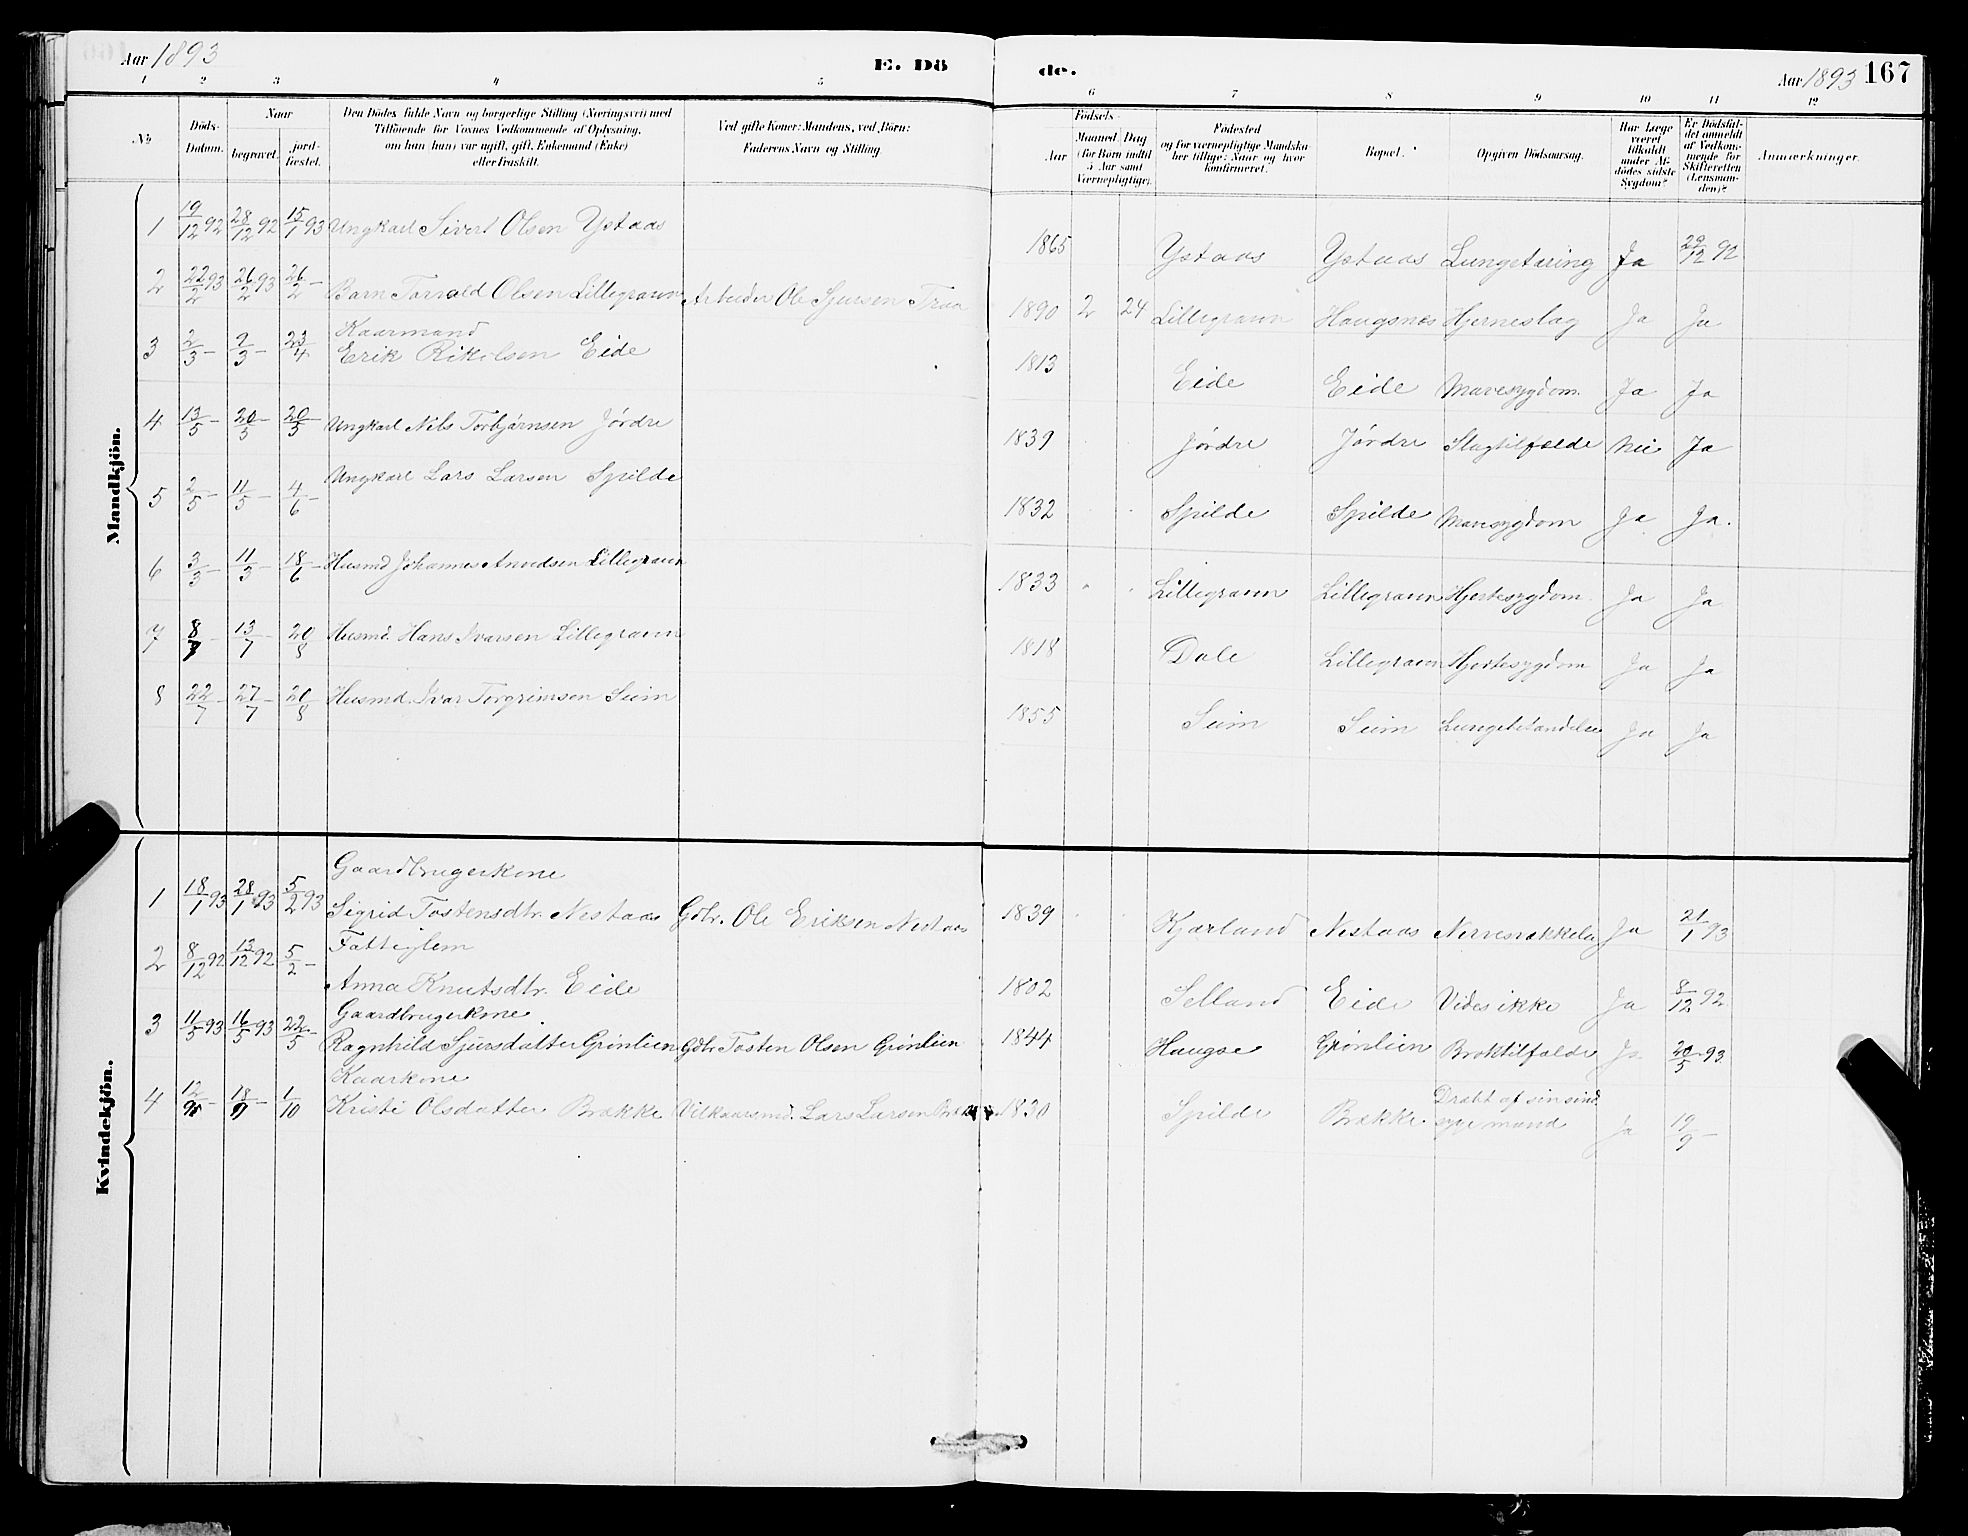 Aar 1893
E. Dö
de.
Aar 1893 167
1 2 3 4 5 6 7 8 9 10 11 12
№
Döds-Datum.
Naar
begravet.
jord-fæstet.
Den Dödes fulde Navn og borgerlige Stilling (Næringsvei) med
Tilföiende for Voxnes Vedkommende af Oplysning,
om han (hun) var ugift, gift, Enkemand (Enke)
eller fraskilt.
Ved gifte Koner: Mandens, ved Börn:
Faderens Navn og Stilling
Födsels-
Aar
Maaned Dag
(for Börn indtil
5 Aar samt
Værnepligtige).
Födested
og for værnepligtige Mandska-
ber tillige: Naar og hvor
konfirmeret.
Bopæl.
Opgiven Dödsaarsag.
Har Læge
været
tilkaldt
under Af-
dödes sidste
Sygdom?
Er Dödsfal-
det anmeldt
af Vedkom-
mende for
Skifteretten
(Lensman-
den)?
Anmærkninger.
Mandkjön.
1 19/12 92 28/12 92 15/1 93 Ungkarl Sivert Olsen Ystaas 1865 Ystaas Ystaas Lungetæring Ja 29/12 92
2 22/2 93 26/2 93 26/2 – Barn Torvald Olsen Lillegraven Arbeider Ole Sjursen Traa 1890 2 24 Lillegraven Haugsnes Hjerneslag Ja Ja
Kaarmand
3 2/3 – 9/3 – 23/4 Erik Rikolsen Eide 1813 Eide Eide Mavesygdom. Ja Ja
4 13/5 – 20/5 – 20/5 – Ungkarl Nils Torbjørnsen Jørdre 1839 Jørdre Jørdre Slagtilfælde Nei Ja
5 2/5 – 11/5 – 4/6 – Ungkarl Lars Larsen Spilde 1832 Spilde Spilde Mavesygdom Ja Ja.
6 3/3 – 11/3 – 18/6 – Husmd Johannes Anvedsen Lillegraven 1833 Lillegraven Lillegraven Hjertesygdom Ja Ja
7 8/7 – 13/7 – 20/8 Husmd. Hans Ivarsen Lillegraven 1818 Dale Lillegraven Hjertesygdom Ja Ja
8 22/7 – 27/7 – 20/8 Husmd. Ivar Torgrimsen Seim 1855 Seim Seim Lungebetændelse Ja Ja
Kvindekjön.
Gaardbrugerkone
1 18/1 93 28/1 93 5/2 93 Sigrid Tostensdtr. Nestaas Gdbr. Ole Eriksen Nestaas 1839 Kjærland Nestaas Nervesvækkelse Ja 21/1 93
Fattiglem
2 8/12 92 13/12 92 5/2 – Anna Knutsdtr. Eide 1802 Selland Eide Vides ikke Ja 8/12 92
Gaardbrugerkone
3 11/5 93 16/5 93 22/5 – Ragnhild Sjursdatter Grønlien Gdbr Tosten Olsen Grønlien 1844 Haugse Grønlien Broktilfælde Ja 20/5 93
Kaarkone
4 12/9 – 18/9 – 1/10 Kristi Olsdatter Brække Vilkaarsmd. Lars Larsen 1830 Spilde Brække Dræbt af sin sind
syge mand Ja 19/9 –